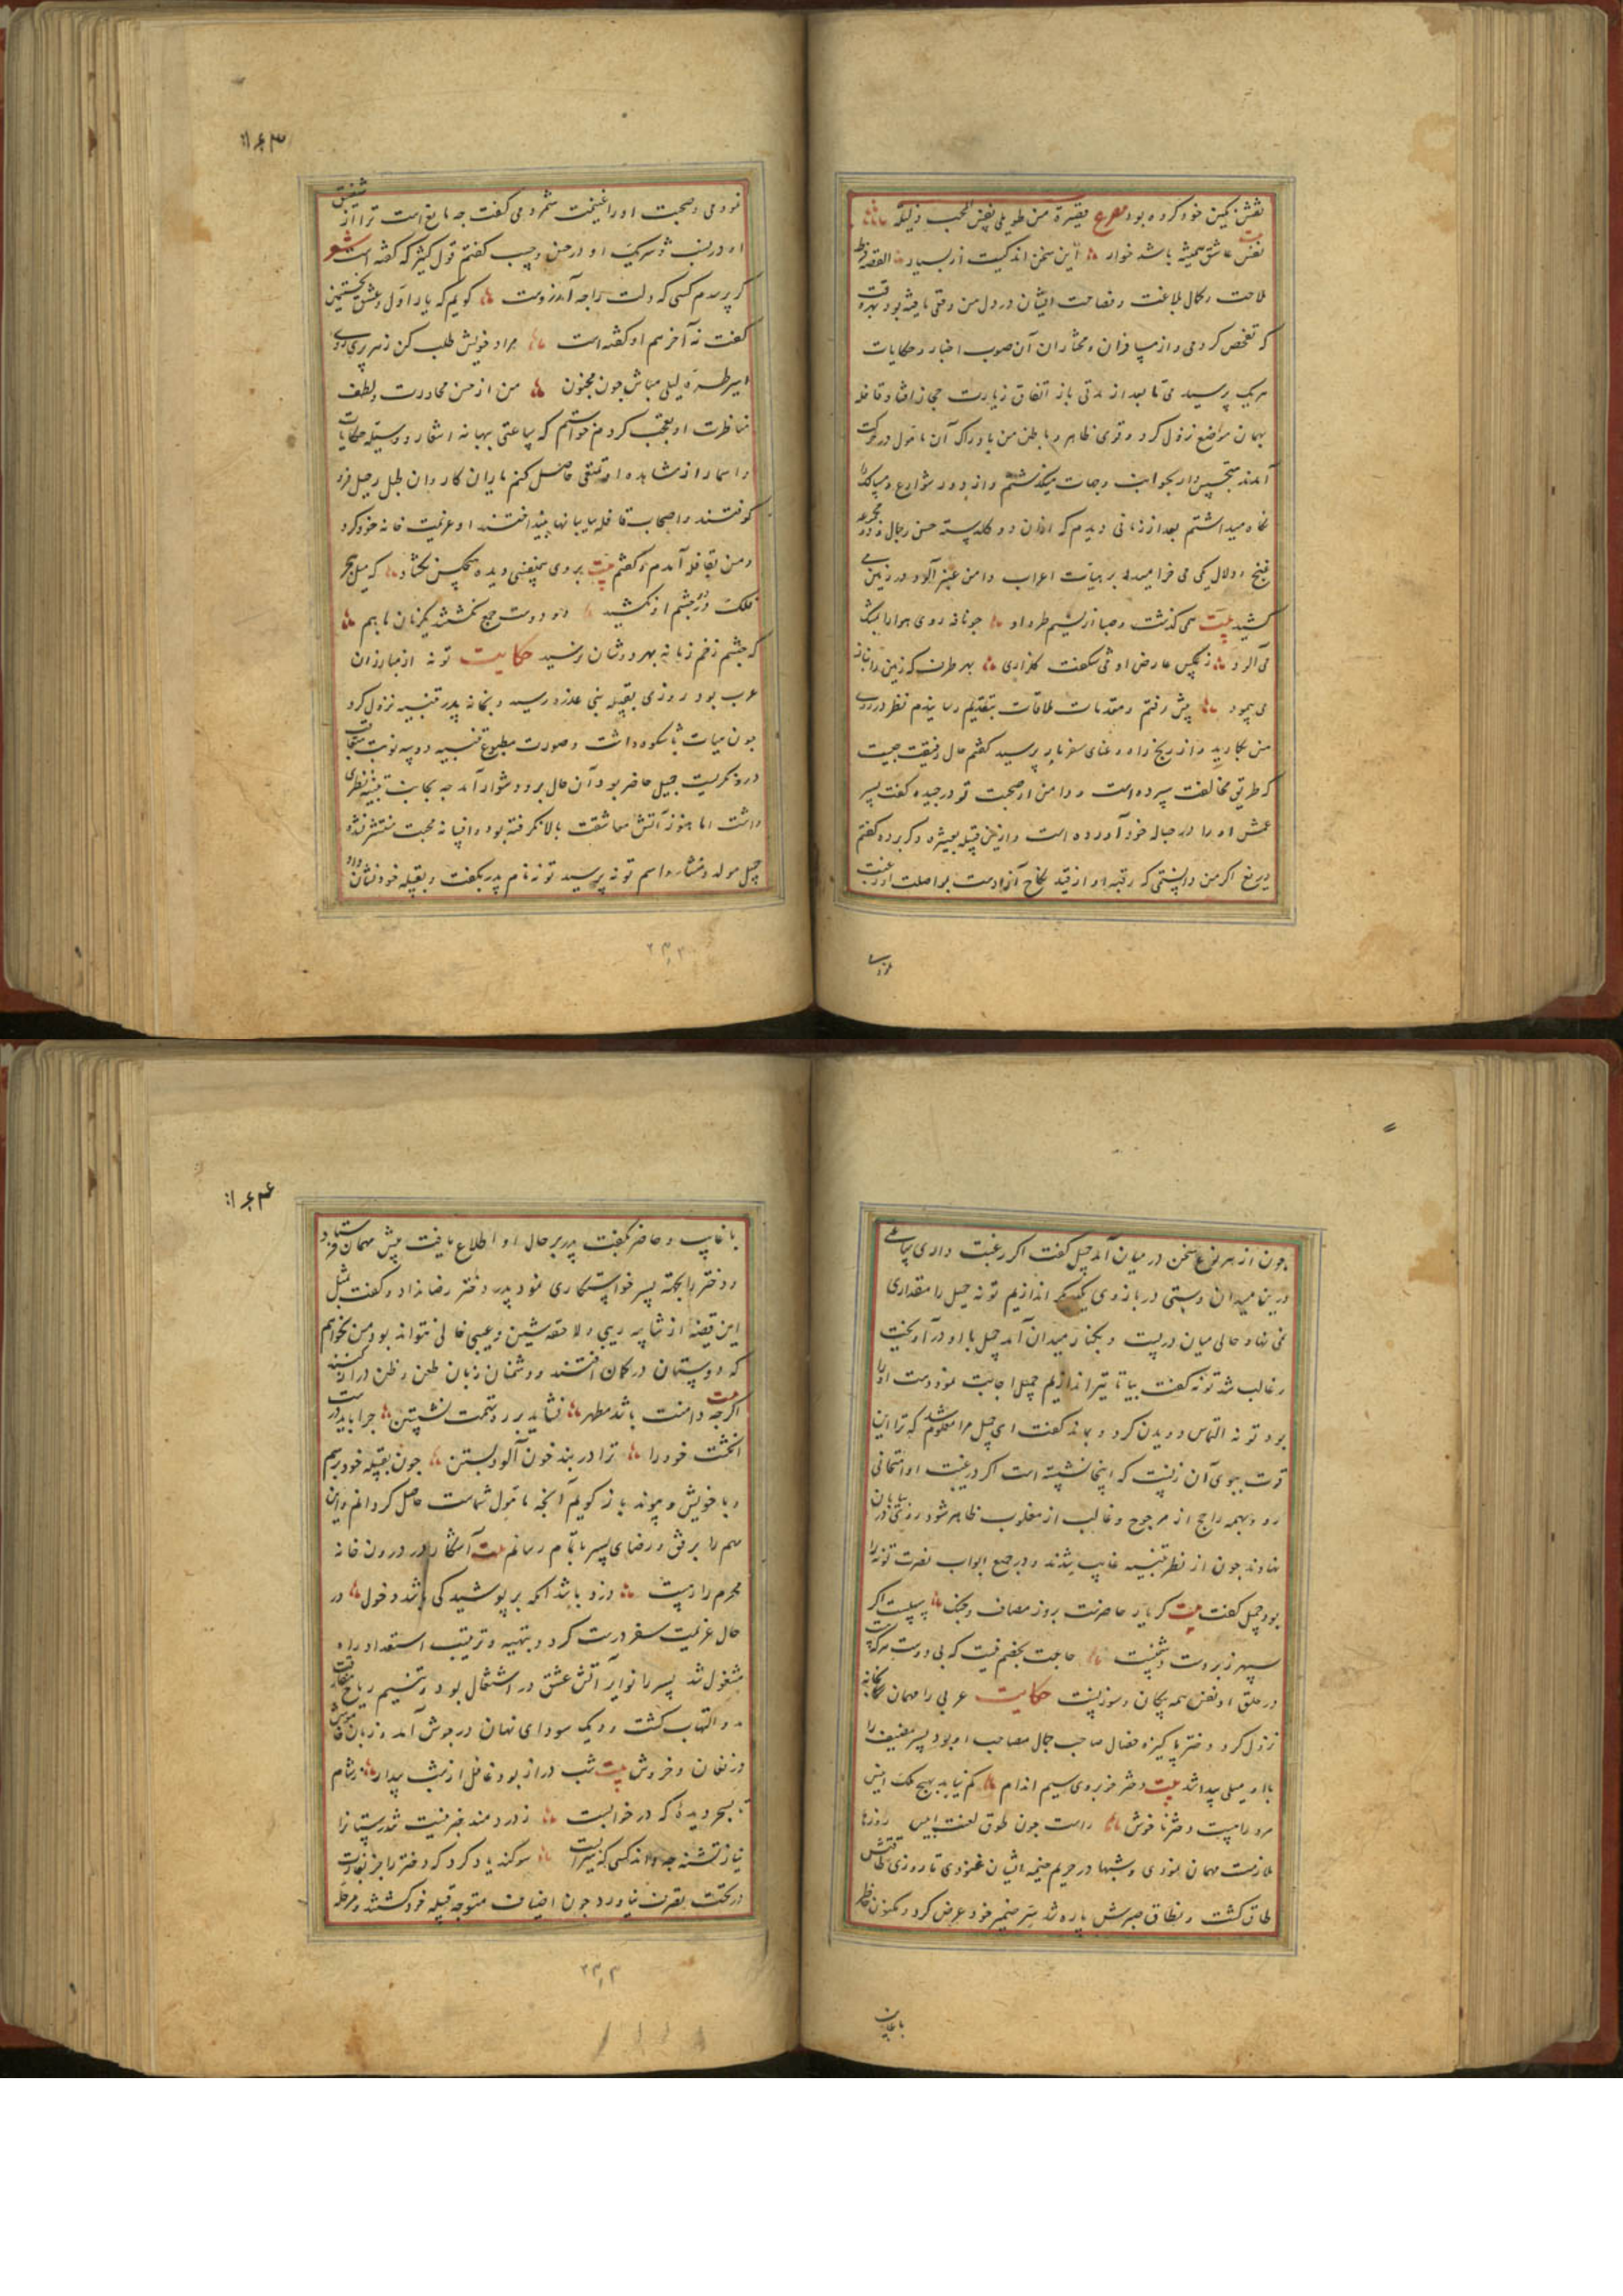 نقش نکین خود کرده بود مصرع قصیرة من طویلی نفس المحب ذلیلة
نفس عاشق همیشه باشد خوار این سخن اندکیست از بسیار القصه فرط
ملاحت و کمال بلاغت و فصاحت ایشان در دل من وقتی یافته بود بهر وقت
که تفحص کردمی و از مسافران و مختاران آن صوب اخبار و حکایات
هر یک پرسیدمی تا بعد از مدتی باز اتفاق زیارت حجاز افتاد و قافله
بهمان مواضع نزول کرد و قوی ظاهر و باطن من بادراک آن مامول در حرکت
آمدند متجسس وار بجوانب و جهات میکذشتم و از دور شوارع و مسالک را
نکاه میداشتم بعد از زمانی دیدم که از آن دو کلدسته حسن رجال و دو
غنج و دلال یکی می خرامید بر هیات اعراب دامن عنبر آلود در زمین می
کشید بیت می کذشت و صبا از نسیم طره او جو نافه روی هوا را بمشک
می آلود ز عکس عارض او می شکفت کلزاری بهر طرف که زمین را
می پیمود پیش رفتم و مقدمات ملاقات بتقدیم رسانیدم نظر در روی
من بکارید و از رنج راه و عنای سفر باز پرسید کفتم حال رفیقت چیست
که طریق مخالفت سپرده است و دامن از صحبت تو در چیده کفت پسر
عمش او را در حباله خود آورده است و ازین قبیله بعشیره دکر برده کفتم
دریغ اکر من دانستمی که رقبه او از قید نکاح آزادست بمواصلت او رغبت
نمودمی و صحبت او را غنیمت شمردمی کفت چه مانع است ترا از شقیق
او در نسب و شریک او در حسن و حسب کفتم قول کثیر که کفته است شعر
کر پرسدم کسی که دلت را چه آرزوست کویم که یار اول و عشق نخستین
کفت نه آخر هم او کفته است مراد خویش طلب کن ز هر پری رویی
اسیر طره لیلی مباش جون مجنون من از حسن محاورت و لطف
مناظرت او تعجب کردم خواستم که ساعتی ببهانه اشعار و وسیله حکایات
و اسمار از مشاهده او تمتعی حاصل کنم یاران کاروان طبل رحیل فرو
کوفتند و اصحاب قافله بیابانها بینداختند او عزیمت خانه خود کرد
و من بقافله آمدم و کفتم بیت بروی همنفسی دیده هیچکس نکشاد که میل هجر
فلک در چشم او نکشید دو دوست جمع نکشتند یکزمان با هم
که چشم زخم زمانه بهر دوشان نرسید حکایت توبه از مبارزان
عرب بود روزی بقبیله بنی عذره رسید و بخانه پدر بثینه نزول کرد
جون هیات با شکوه داشت و صورت مطبوع بثینه دو سه نوبت متعاقب
درو نکریست جمیل حاضر بود آن حال برو دشوار آمد چه بجانب بثینه نظری
داشت اما هنوز آتش معاشقت بالا نکرفته بود و افسانه محبت منتشر نشده
جمیل مولد و منشا و اسم توبه پرسید توبه نام پدر بکفت و بقبیله خود نشان داد
جون از هر نوع سخن در میان آمد جمیل کفت اکر رغبت داری بیا تا
درین میدان دستی در بازوی یکدیکر اندازیم توبه جمیل را مقداری
نمی نهاد حالی میان در بست و بکنار میدان آمد جمیل با او در آویخت
و غالب شد توبه کفت بیا تا تیر اندازیم جمیل اجابت نمود و دست او را
بود توبه التماس دویدن کرد و بماند کفت ای جمیل مرا معلوم شد که ترا این
قوت ببوی آن زنیست که اینجا نشسته است اکر در غیبت او امتحانی
رود همه راجح از مرجوح و غالب از مغلوب ظاهر شود روی در بیابان
نهادند جون از نظر بثینه غایب شدند و در جمیع ابواب نصرت توبه را
بود جمیل کفت بیت کر یار حاضرست بروز مصاف و جنک
سپهر زبردست دشمنست حاجت بخصم نیست که بی دوست مرکب
در حلق او نفس همه پیکان و سوزنست حکایت عربی را مهمان بخانه
نزول کرد و دختر پاکیزه خصال صاحب جمال مصاحب او بود پسر مضیف را
با او میلی پیدا شد بیت دختر خوبروی سیم اندام کم نیاید بهیچ مکث انیس
مرد را جیست دختر ناخوش راست جون طوق لعنت ابلیس روزها
ملازمت مهمان نمودی و شبها در حریم خیمه ایشان غنودی تا روزی طاقتش
طاق کشت و نطاق صبرش پاره شد سر ضمیر خود عرض کرد و مکنون خاطر
با غایب و حاضر بکفت پدر بر حال او اطلاع یافت پیش مهمان فرستاد
و دختر را بجهة پسر خواستکاری نمود پدر دختر رضا نداد و کفت بمثل
این قضیه از شایبه ریبی و لاحقه شین و عیبی خالی نتواند بود من نخواهم
که دوستان در کمان افتند و دشمنان زبان طعن و ظن دراز کنند
اکرچه دامنت باشد مطهر نشاید بر در تهمت نشستن جرا باید درست
انکشت خود را ترا در بند خون آلود بستن جون بقبیله خود رسیم
و با خویش و پیوند باز کویم آنچه مامول شماست حاصل کردانم و این
مهم را برفق و رضای پسر باتمام رسانم بیت آشکارا در درون خانه
محرم را رهیست دزد باشد آنکه بر پوشیدکی باشد دخول در
حال عزیمت سفر درست کرد و بتهیه و ترتیب استعداد راه
مشغول شد پسر را نوایر آتش عشق در اشتعال بود و بتنسیم ریاح مفارقت
در التهاب کشت و دیک سودای نهان در جوش آمد و زبان خاموش
در فغان و خروش بیت شب دراز بود غافل از شب بیدار
تا بسحر دیده که در خوابست ز دردمند خبر نیست تندرستانرا
نیاز تشنه چه داند کسی که سیرابست سوکند یاد کرد که دختر را جز
در تحت تصرف نیاورد جون اضیاف متوجه قبیله خود کشتند و مرحله